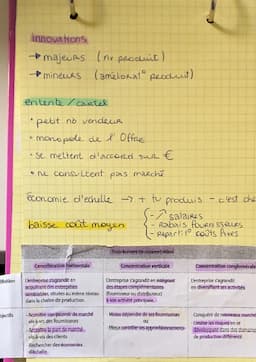 innovations
→ majeurs (nv produit)
→ mineurs (améliorat° produit)
entente / cartel
• petit nb vendeur
• monopole de l'Offre
• se mettent d'accord sur €
• ne constituent pas marché
Économie d'échelle → + tu produis - c'est cher
baisse coût moyen
- ↗ salaires
- Rabais fournisseurs
- Répartit° coûts fixes
Concentration horizontale
Concentration verticale
Concentration conglomérale
L'entreprise s'agrandit en
acquérant des entreprises
similaires, situées au même niveau
dans la chaîne de production.
L'entreprise s'agrandit en intégrant
des étapes complémentaires
(fournisseur ou distributeur)
à son activité principale.
L'entreprise s'agrandit
en diversifiant ses activités
Accroître son pouvoir de marché
vis-à-vis des fournisseurs
Accroître la part de marché
vis-à-vis des clients
Rechercher des économies
d'échelle
Moins dépendre de ses fournisseurs
ou
Mieux contrôler ses approvisionnements
Conquérir de nouveaux marchés
Limiter les risques en se
développant dans des domaines
de production différents